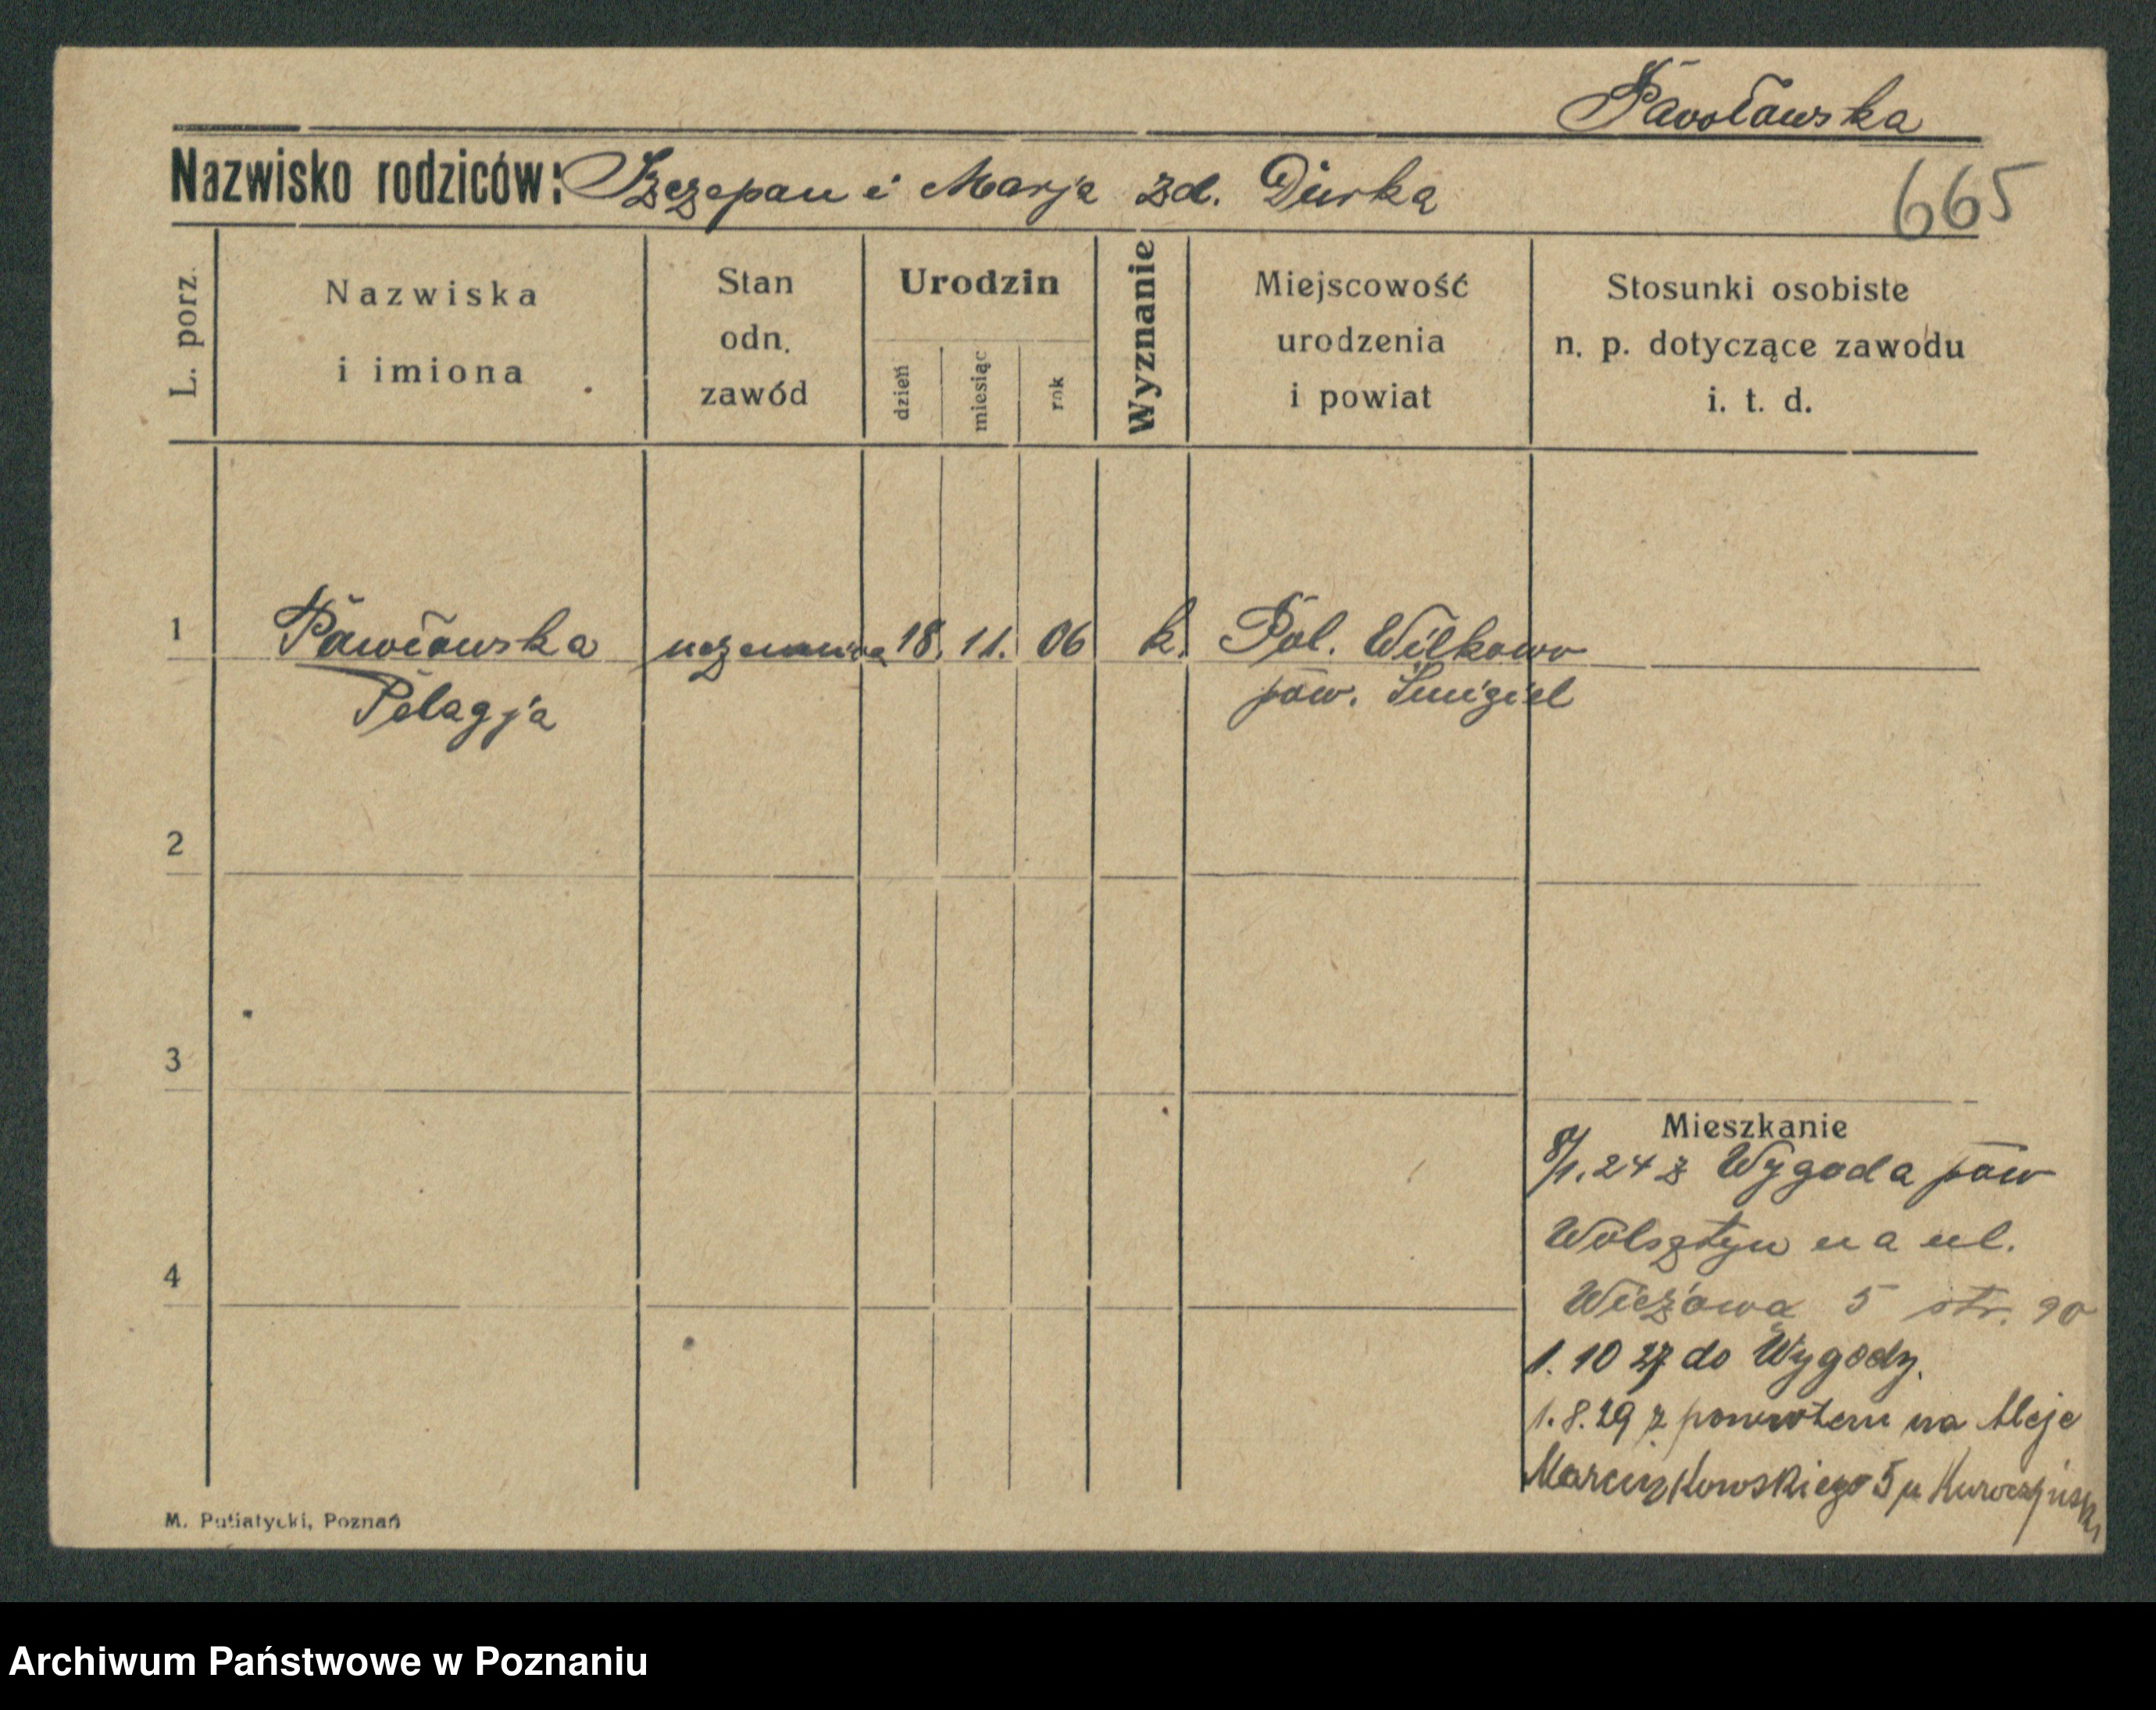 Pawłowska
Nazwisko rodziców: Szczepan i Marja zd. Durka
665
L. porz.
Nazwiska
i imiona
Stan
odn.
zawód
Urodzin
dzień
miesiąc
rok
Wyznanie
Miejscowość
urodzenia
i powiat
Stosunki osobiste
n. p. dotyczące zawodu
i. t. d.
1 Pawłowska uczennica 18. 11. 06 k. Pol. Wilkowo
Pelagja pow. Śmigiel
2
3
Mieszkanie
8/1.24 z Wygoda pow
Wolsztyn na ul.
4
Wieżowa 5 str. 90
1. 10 27 do Wygody.
1.8.29 z powrotem na Aleje
Marcinkowskiego 5 u
M. Putiatycki, Poznań
Archiwum Państwowe w Poznaniu